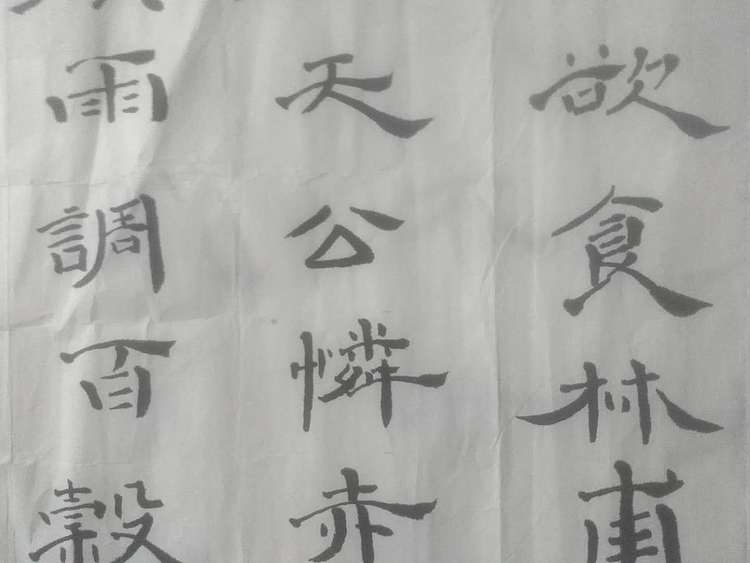 欲食林甫
天公憐赤
雨調百穀